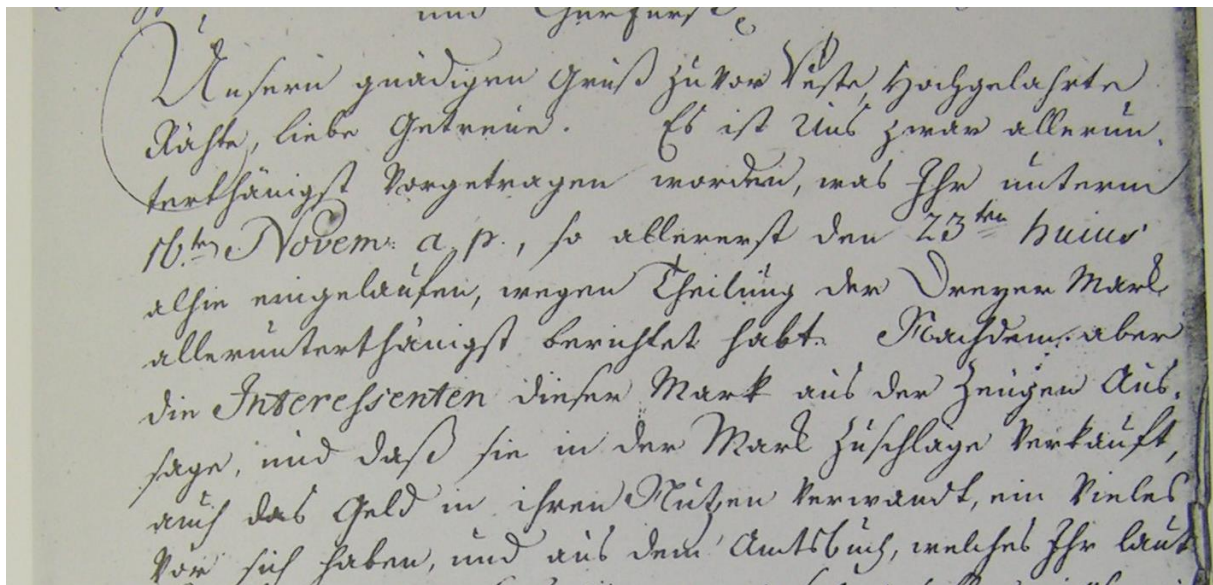 und Churfürst.
Unsern gnädigen Gruß zuvor Veste, Hochgelahrte
Räthe, liebe Getreue. Es ist Uns zwar allerun-
terthänigst vorgetragen worden, was Ihr unterm
16.ten Novem: a. p., so allererst den 23ten huius
alhie eingelaufen, wegen Theilung der Dreyer Mark
allerunterthänigst berichtet habt. Nachdem aber
die Interessenten dieser Mark aus der Zeugen Aus-
sage, und daß sie in der Mark Zuschläge verkauft,
auch das Geld in ihren Nutzen verwandt, ein vieles
vor sich haben, und aus dem Amtsbuch, welches Ihr laut